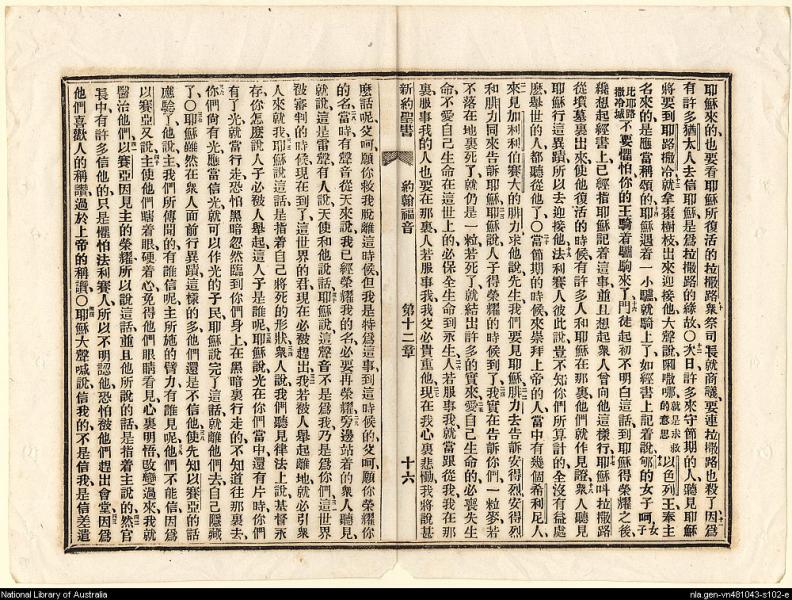 耶穌來的也要看耶穌所復活的拉撒路衆祭司長就商議要連拉撒路也殺了因爲
有許多猶太人去信耶穌是爲拉撒路的緣故〇次日許多來守節期的人聽見耶穌
將要到耶路撒冷就拿棗樹枝出來迎接他大聲說啊㗒嗱就是求救的意思以色列王奉主
名來的是應當稱頌的耶穌遇着一小驢就騎上了如經書上記着說郇的女子呵女子
比耶路撒冷城不要懼怕你的王騎着驢駒來了門徒起初不明白這話到耶穌得榮耀之後
纔想起經書上已經指耶穌記着這事並且想起衆人曾向他這樣行耶穌叫拉撒路
從墳墓裏出來使他復活的時候有許多人和耶穌在那裏他們就作見證衆人聽見
耶穌行這異蹟所以去迎接他法利賽人彼此說豈不知你們所算計的全沒有益處
麽舉世的人都聽從他了〇當節期的時候來崇拜上帝的人當中有幾個希利尼人
來見加利利伯賽大的腓力求他說先生我們要見耶穌腓力去告訴安得烈安得烈
和腓力同來告訴耶穌耶穌說人子得榮耀的時候到了我實在告訴你們一粒麥若
不落在地裏死了就仍是一粒若死了就結出許多的實來愛自己生命的必喪失生
命不愛自己生命在這世上的必保全生命到永生人若服事我就當跟從我我在那
裏服事我的人也要在那裏人若服事我我父必貴重他現在我心裏悲慟我將說甚
新約聖書 約翰福音 第十二章 十六
麽話呢父呵願你救我脫離這時候但我是特爲這事到這時候的父呵願你榮耀你
的名當時有聲音從天來說我已經榮耀我的名必要再榮耀旁邊站着的衆人聽見
就說是雷聲有人說天使和他說話耶穌說這聲音不是爲我乃是爲你們這世界
被審判的時候現在到了這世界的君現在必被趕出我若被人舉起離地就必引衆
人來就我耶穌說這話是指着自己將死的形狀衆人說我們聽見律法上說基督永
存你怎麽說人子必被人舉起這人子是誰呢耶穌說光在你們當中還有片時你們
有了光就當行走恐怕黑暗忽然臨到你們身上在黑暗裏行走的不知道往那裏去
你們尙有光應當信光就可以作光的子民耶穌說完了這話就離他們去自己隱藏
了〇耶穌雖然在衆人面前行異蹟這樣的多他們還是不信他使先知以賽亞的話
應驗了他說主我們所傳聞的有誰信呢主所施的臂力有誰見呢他們不能信因爲
以賽亞又說主使他們瞎着眼硬着心免得他們眼睛看見心裏明悟改變過來我就
醫治他們以賽亞因見主的榮耀所以說這話並且他所說的話是指着主說的然官
長中有許多信他的只是懼怕法利賽人所以不明認他恐怕被他們趕出會堂因爲
他們喜歡人的稱讚過於上帝的稱讚〇耶穌大聲喊說信我的不是信我是信差遣
National Library of Australia
nla.gen-vn481043-s102-e